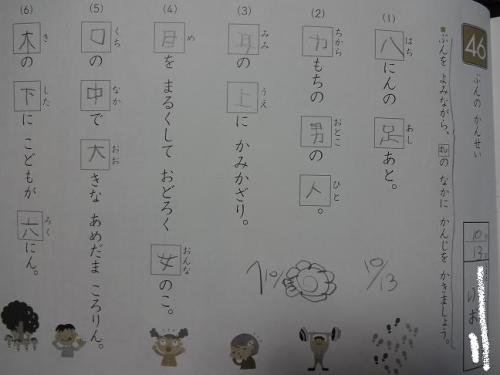 46
ぶんの かんせい
■ぶんを よみながら、□の なかに かんじを かきましょう。
10
13
(1) 八にんの 足あと。
はち
あし
(2) 力もちの 男の 人。
ちから
おとこ
ひと
(3) 耳の 上に かみかざり。
みみ
うえ
(4) 目を まるくして おどろく 女のこ。
め
おんな
(5) 口の 中で 大きな あめだま ころりん。
くち
なか
おお
(6) 木の 下に こどもが 六にん。
き
した
ろく
10/13